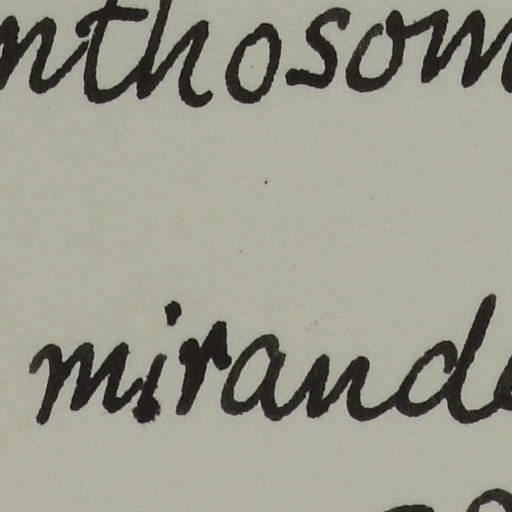 nthosom
mirande